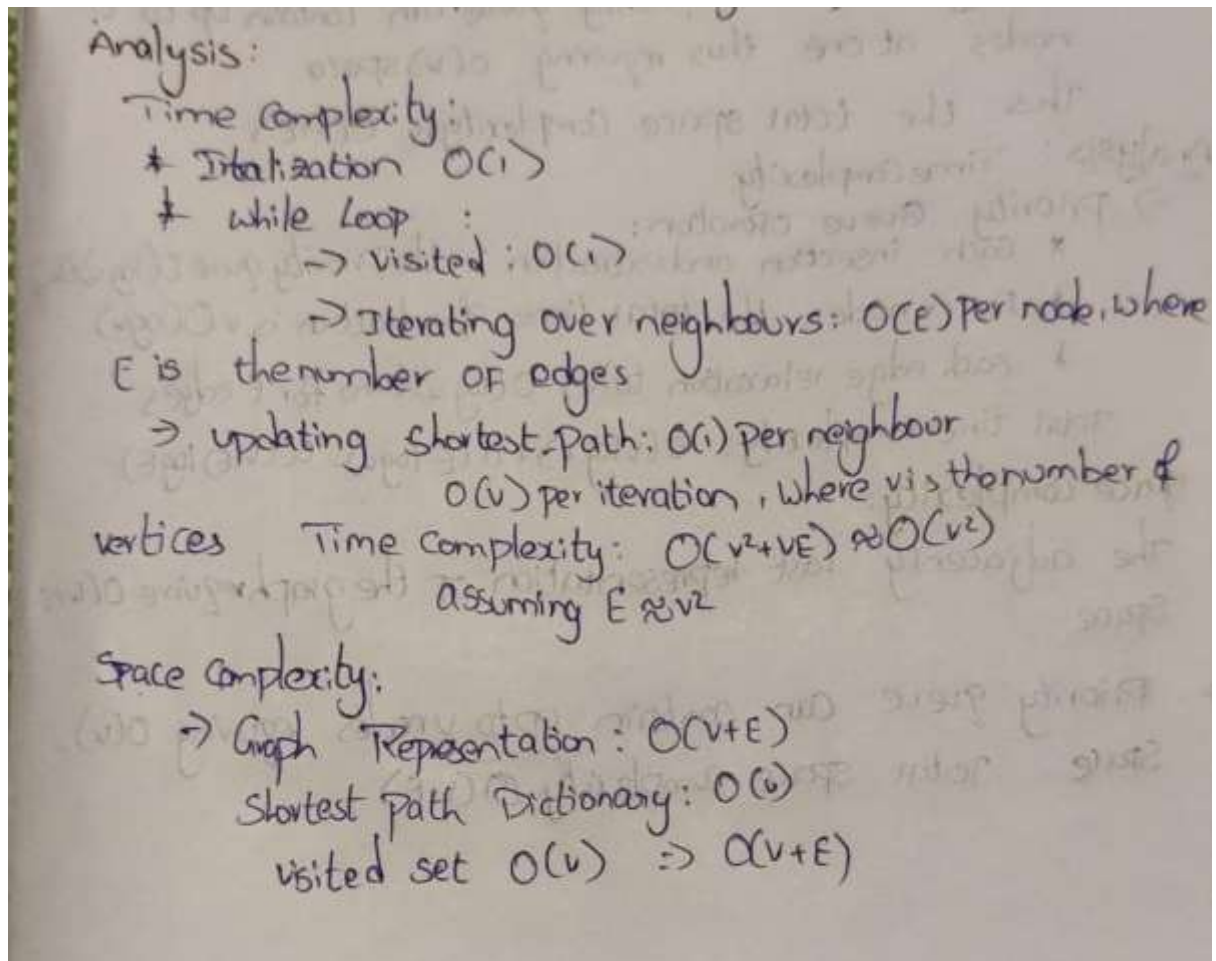 Analysis:
Time Complexity:
* Iitalization O(1)
* while Loop :
-> visited : O(1)
-> Iterating over neighbours: O(E) per node, where
E is the number OF edges
-> updating shortest-path: O(1) per neighbour
O(V) per iteration, where v is the number of
vertices Time Complexity: O(V²+VE) ≈ O(V²)
assuming E ≈ V²
Space Complexity:
-> Graph Representation : O(V+E)
Shortest path Dictionary: O(V)
visited set O(V) => O(V+E)